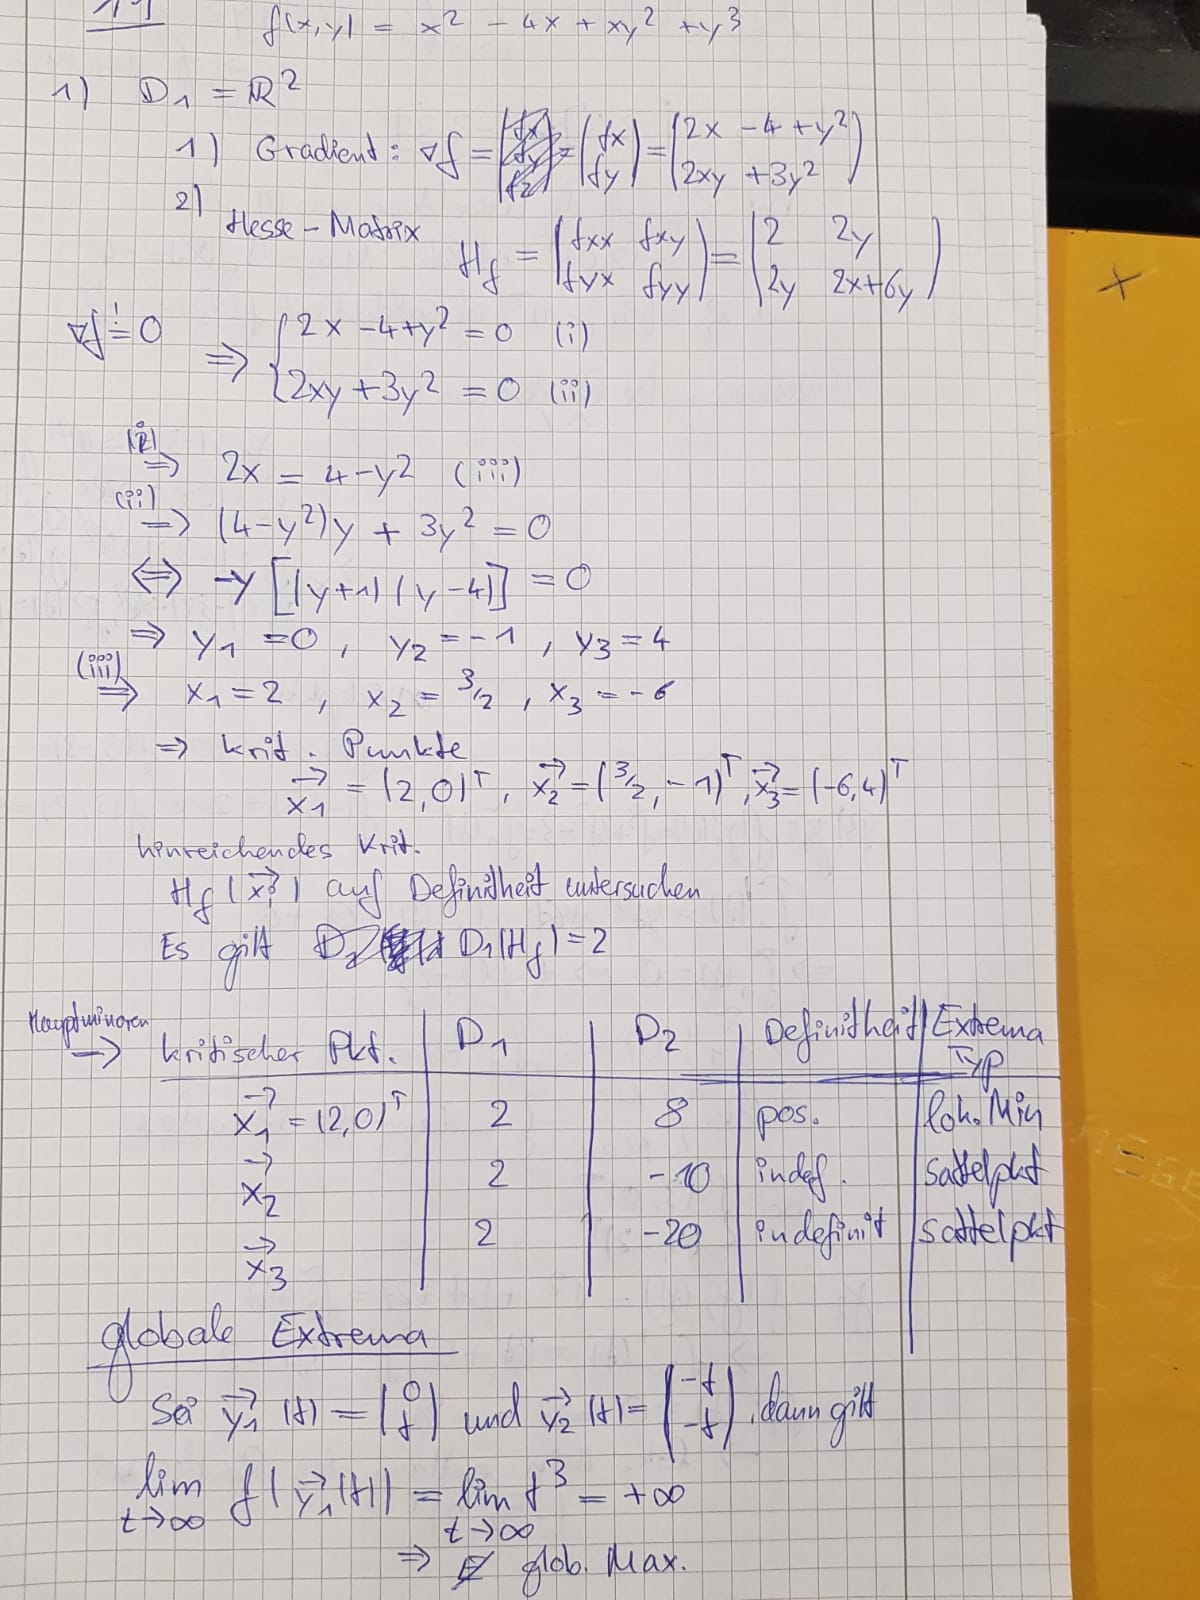 11
f(x,y) = x² - 4x + xy² + y³
1) D₁ = ℝ²
1) Gradient: ∇f = = (fx fy) = (2x - 4 + y² 2xy + 3y²)
2) Hesse-Matrix H_f = (fxx fxy fyx fyy) = (2 2y 2y 2x+6y)
∇f != 0 ⇒ { 2x - 4 + y² = 0 (i)
2xy + 3y² = 0 (ii)
(i) ⇒ 2x = 4 - y² (iii)
(ii) ⇒ (4 - y²)y + 3y² = 0
⇔ -y [(y+1)(y-4)] = 0
⇒ y₁ = 0, y₂ = -1, y₃ = 4
(iii) ⇒ x₁ = 2, x₂ = 3/2, x₃ = -6
⇒ krit. Punkte
x₁→ = (2,0)ᵀ, x₂→ = (3/2, -1)ᵀ, x₃→ = (-6,4)ᵀ
hinreichendes Krit.
H_f(x_i→) auf Definitheit untersuchen
Es gilt D₁(H_f) = 2
Hauptminoren
→ kritischer Pkt. | D₁ | D₂ | Definitheit | Extrema Typ
x₁→ = (2,0)ᵀ | 2 | 8 | pos. | lok. Min
x₂→ | 2 | -10 | indef. | Sattelpkt
x₃→ | 2 | -20 | indefinit | Sattelpkt
globale Extrema
Sei y₁→(t) = (0 t) und y₂→(t) = (-t -t), dann gilt
lim t→∞ f(y₁→(t)) = lim t→∞ t³ = +∞
⇒ ∄ glob. Max.